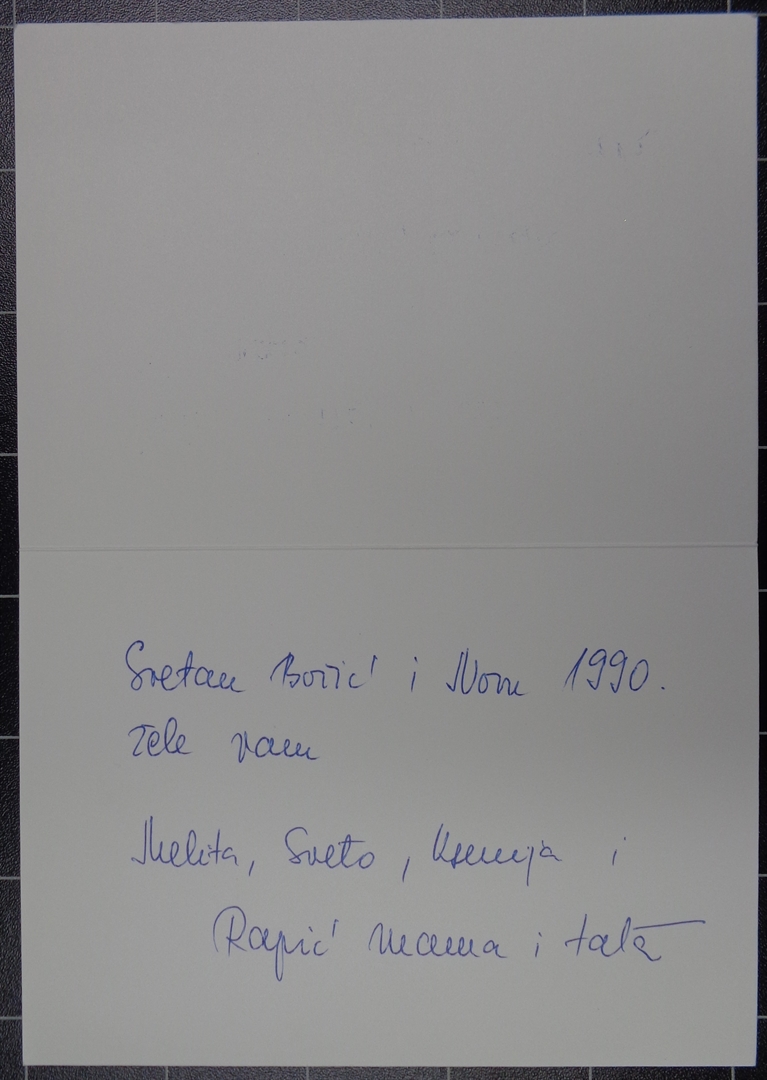 Sretan Božić i Novu 1990.
žele vam
Melita, Sveto, Ksenija i
Rapić mama i tata